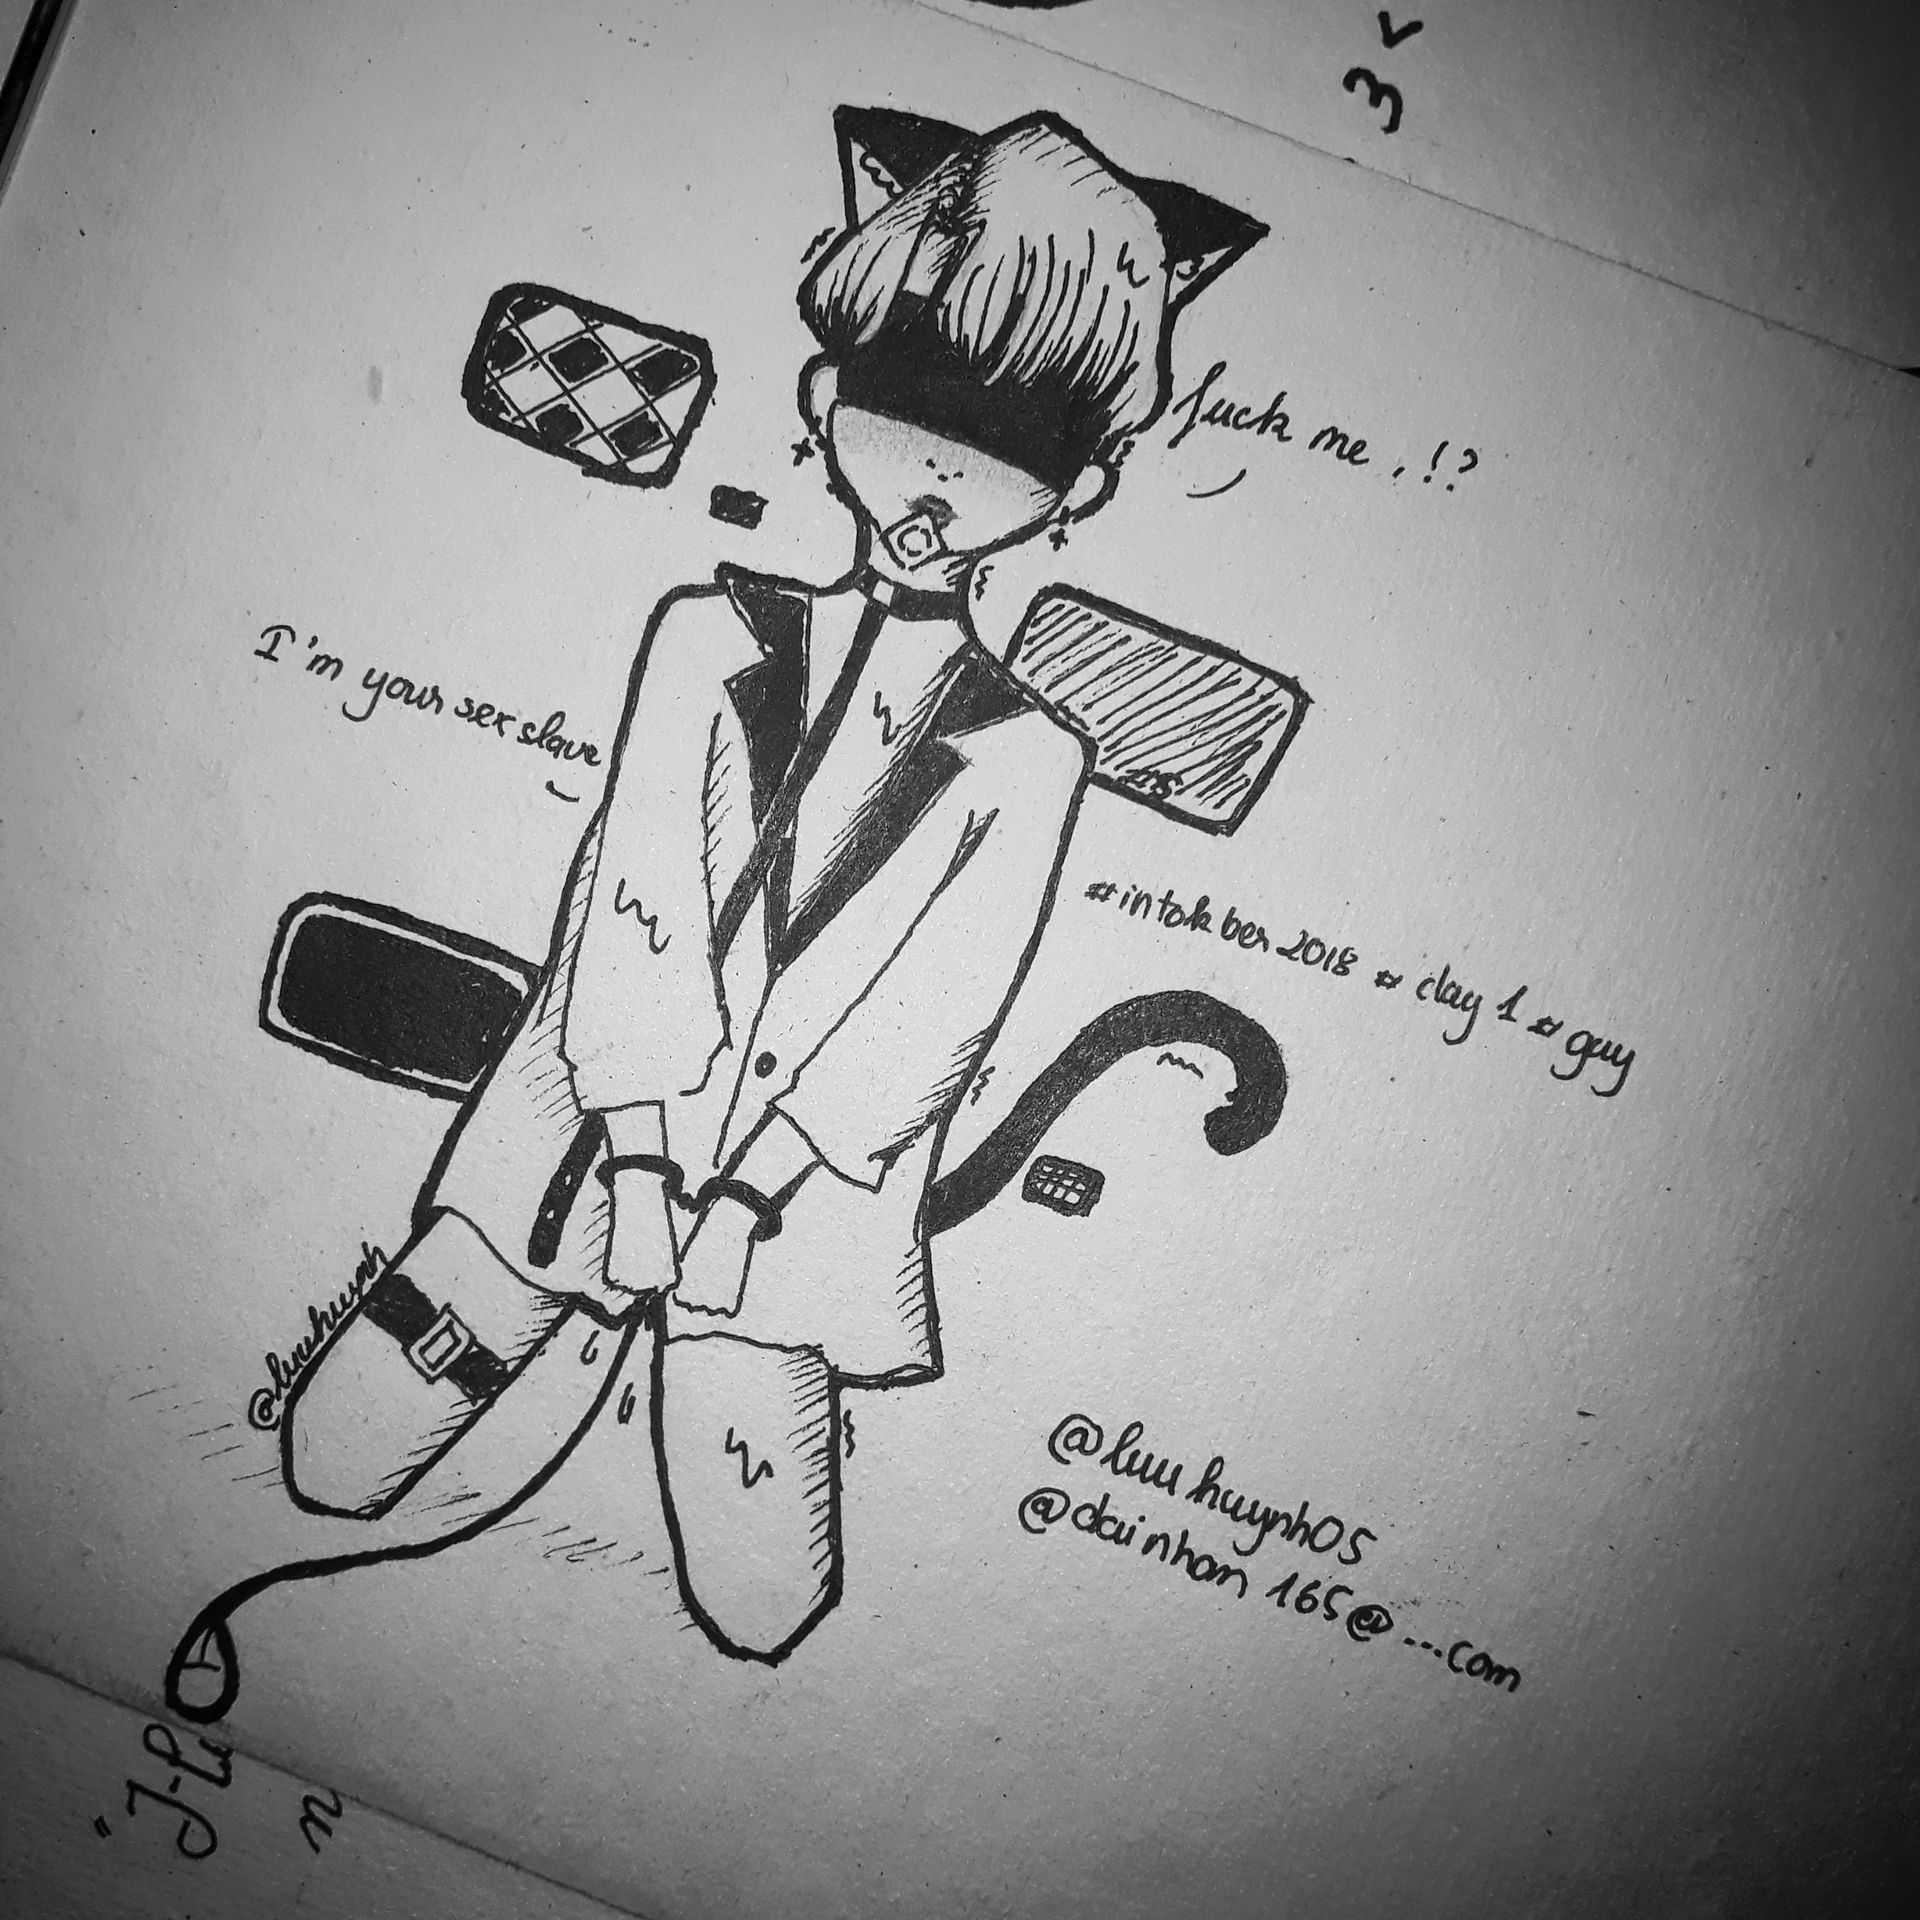 fuck me , !?
I'm your sex slave
#intokber 2018 # day 1 # guy
@luuhuynh
@luuhuynh05
@dainhan 165@...com